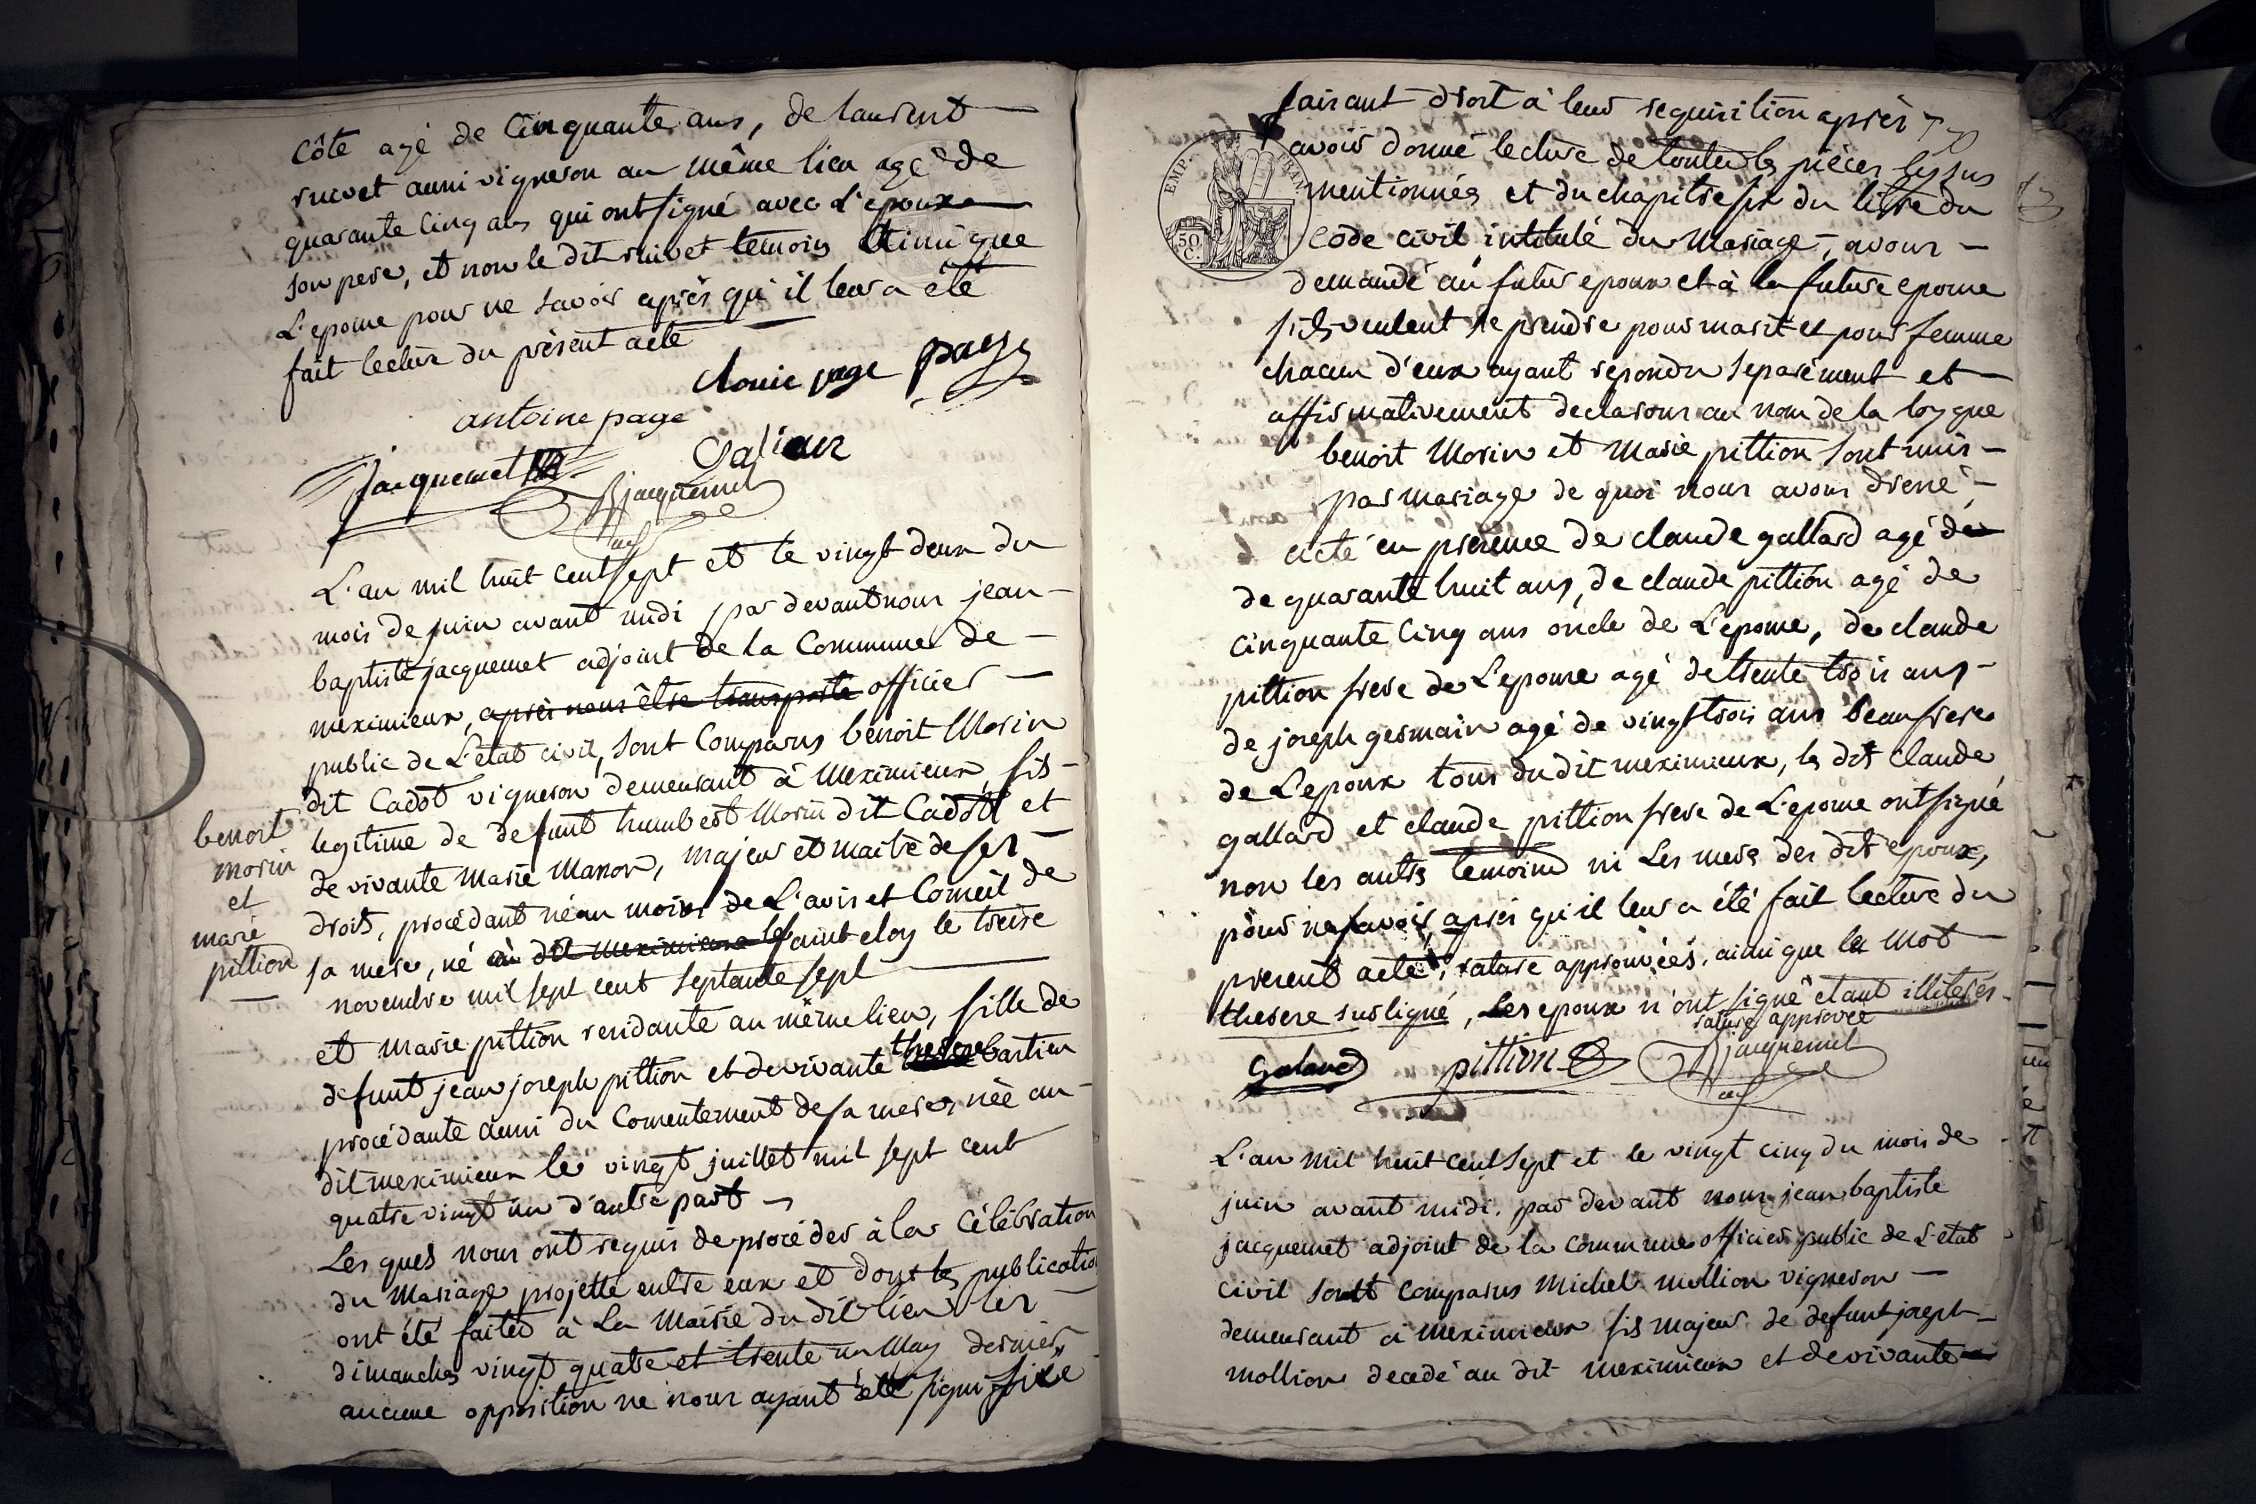 Côte agé de Cinquante ans, de laurent
rurvet aussi vigneron au même lieu agé de
quarante cinq ans qui ont signé avec L'epoux
son pere, et non le dit temoins Ainsi que
L'epouse pour ne savoir après qu'il leur a été
fait lecture du présent acte
page page
antoine page
jacquemet
Bjacquemet
adj
L'an mil huit cent sept et le vingt deux du
mois de juin avant midi par devant nous jean
baptiste jacquemet adjoint de la Commune de
meximieux, après nous être transporté officier
public de L'etat civil, sont Comparus benoit Morin
dit Cadot vigneron demeurant à Meximieux, fils
legitime de defunt humbert Morin dit Cadot et
de vivante Marie Manon, majeur et maitre de ses
droits, procédant néan moins de L'avis et Conseil de
sa mere, né au dit meximieux le saint eloy le treise
novembre mil sept cent septante sept
benoit
morin
et
marie
pittion
et Marie pittion residante au même lieu, fille de
defunt jean joseph pittion et de vivante therese bartien
procédante aussi du Consentement de sa mere, née au
dit meximieux le vingt juillet mil sept cent
quatre vingt un d'autre part
Les quels nous ont requis de procéder à la Célébration
du Mariage projetté entre eux et dont les publication
ont été faites à La Mairie du dit lieu les
dimanches vingt quatre et trente un May dernier
aucune opposition ne nous ayant été signifiée
faisant droit à leur requisition après
avoir donné lecture de toutes les pièces cy sus
mentionnés et du chapitre six du titre du
Code civil intitulé du Mariage, avons
demandé au futur epoux et à la future epouse
s'ils veulent se prendre pour mari et pour femme
chacun d'eux ayant repondu separément et
affirmativement declarons au nom de la loy que
benoit Morin et Marie pittion sont unis
par mariage de quoi nous avons dressé
acte en presence de claude gallard agé de
de quarante huit ans, de claude pittion agé de
cinquante Cinq ans oncle de L'epouse, de claude
pittion frere de L'epouse agé de trente trois ans
de joseph germain agé de vingt trois ans beaufrere
de L'epoux tous du dit meximieux, les dits Claude
gallard et claude pittion frere de L'epouse ont signé
non les autres temoins ni Les meres des dits epoux,
pour ne savoir, après qu'il leur a été fait lecture du
present acte, rature approuvées, ainsi que le Mot
therese surligné, Les epoux n'ont signé étant illiterés
rature approvée
Galand pittion Bjacquemet
adj
L'an Mil huit cent sept et le vingt cinq du mois de
juin avant midi. par devant nous jean baptiste
jacquemet adjoint de la commune officier public de L'etat
civil sont Comparus Michel mollion vigneron
demeurant à Meximieux fils majeur de defunt joseph
mollion decedé au dit meximieux et de vivante
EMP. FRAN.
50
C.